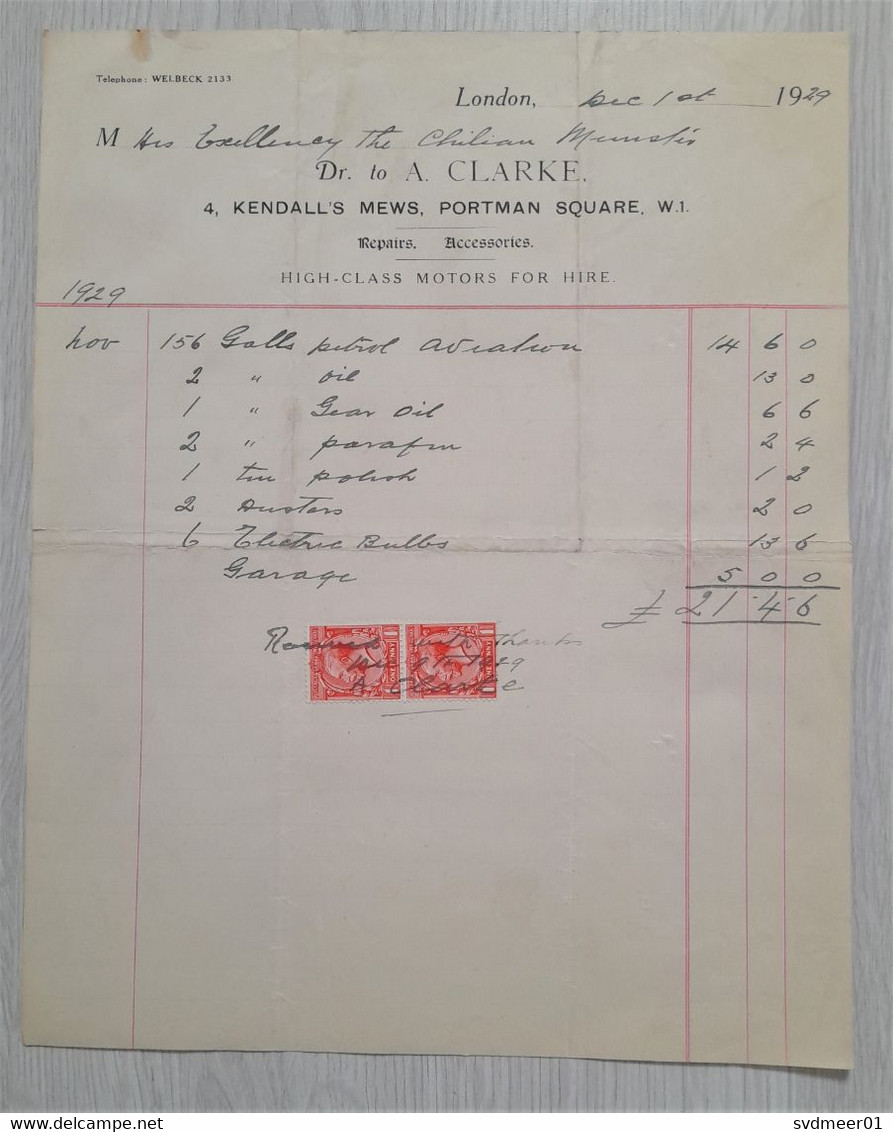 Telephone: WELBECK 2133.
London, Dec 1st 1929
M His Excellency The Chilian Minister
Dr. to A. CLARKE,
4, KENDALL'S MEWS, PORTMAN SQUARE, W.1.
Repairs. Accessories.
HIGH-CLASS MOTORS FOR HIRE.
1929
Nov 156 Galls petrol Aviation 14 6 0
2 " Oil 13 0
1 " Gear Oil 6 6
2 " parafin 2 4
1 tin polish 1 2
2 Dusters 2 0
6 Electric Bulbs 13 6
Garage 5 0 0
£ 21-4-6
Received with Thanks
1929
A Clarke
ONE PENNY
ONE PENNY
www.delcampe.net
svdmeer01